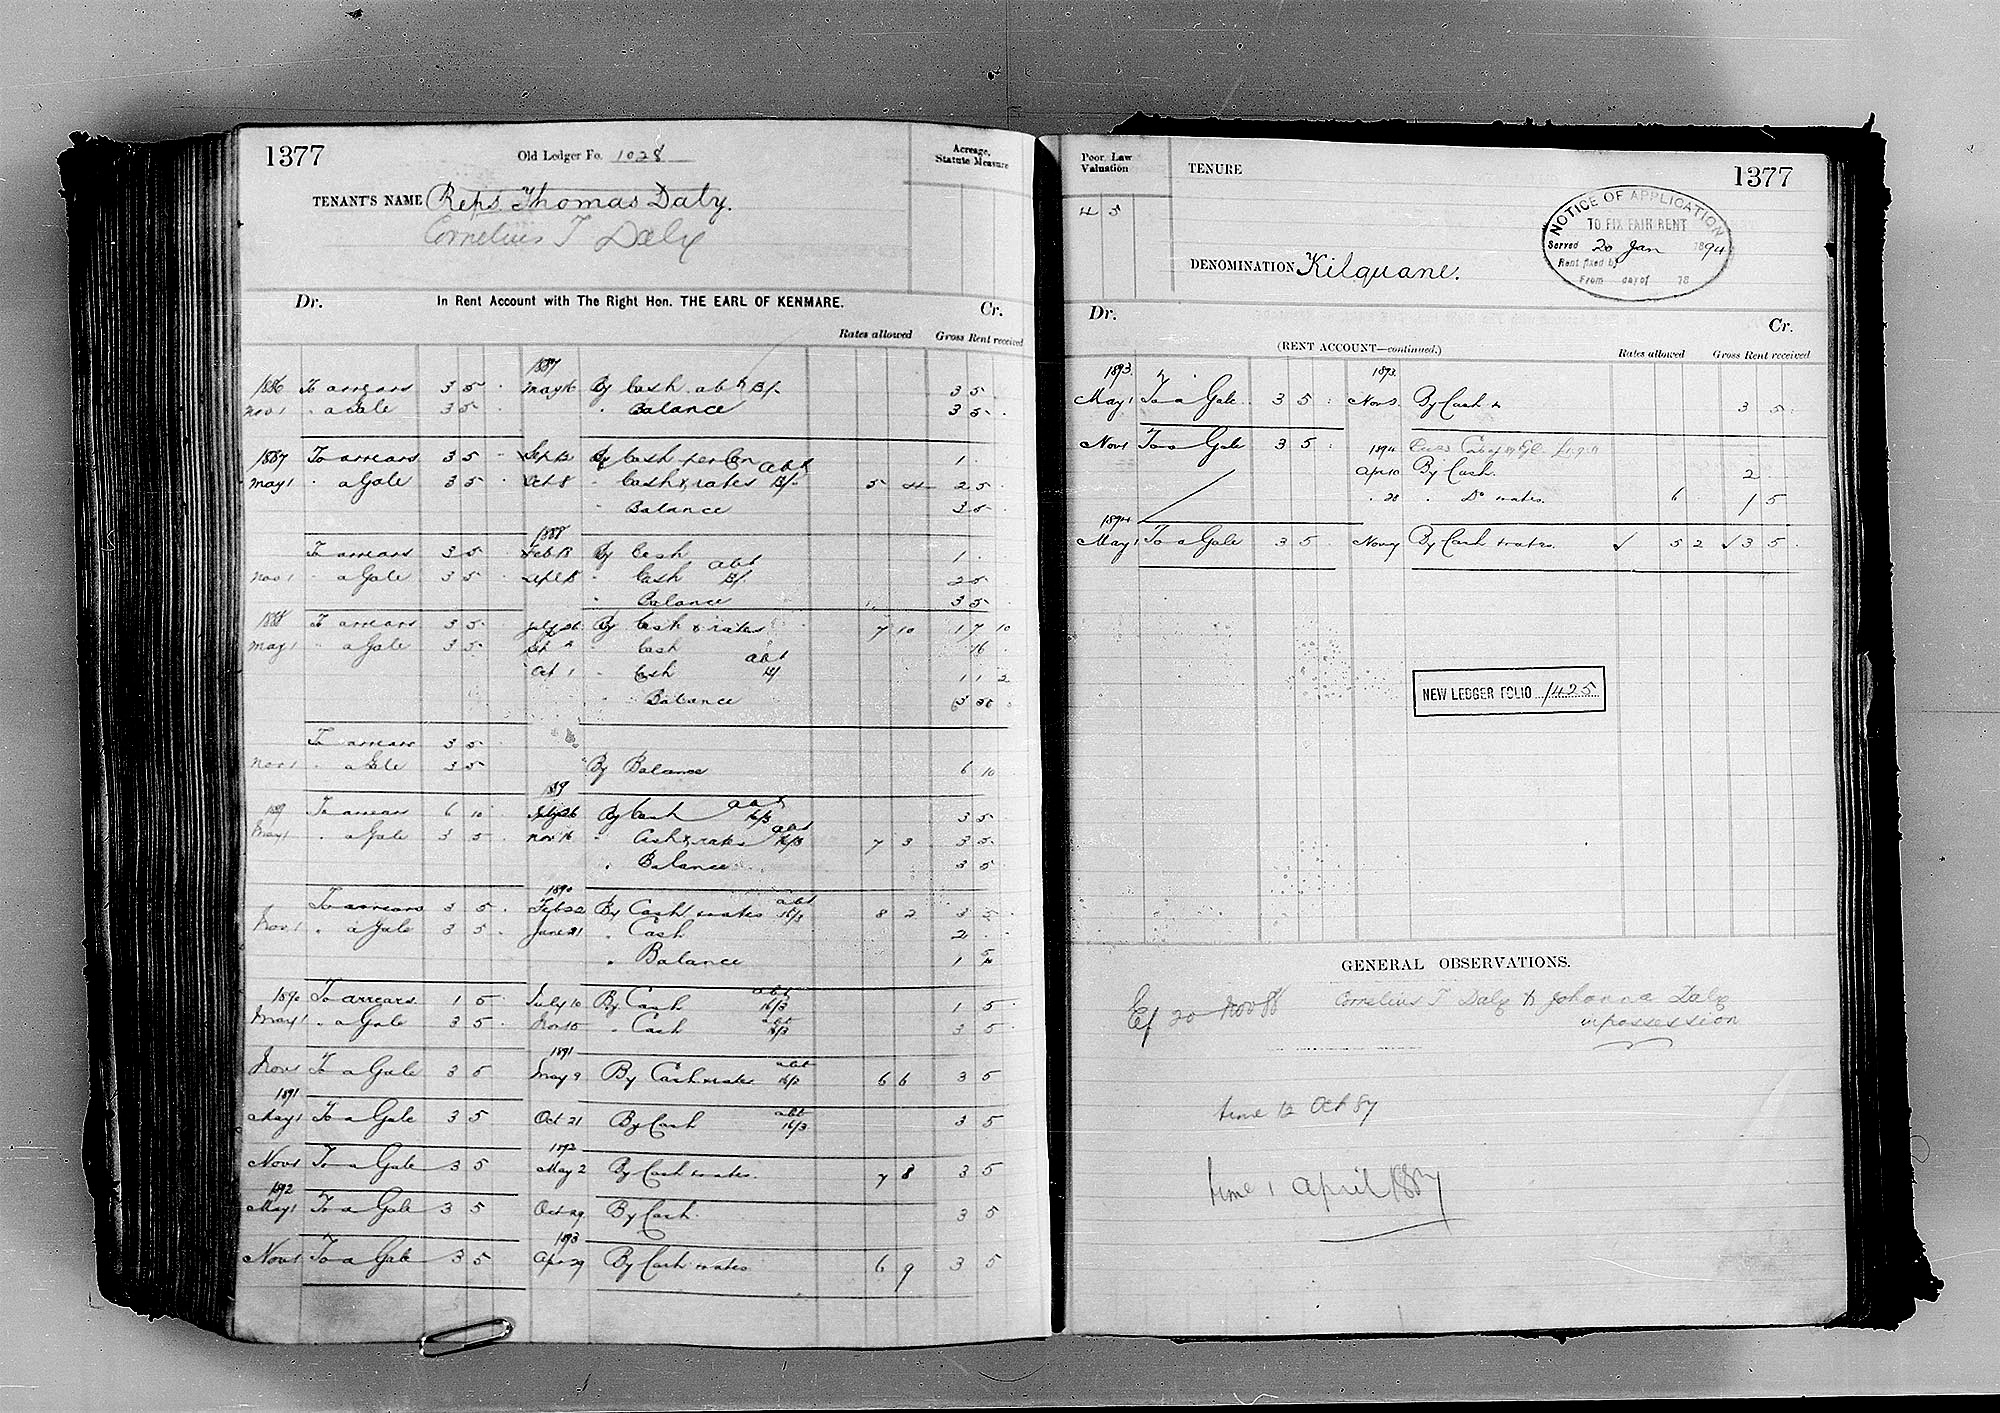 1377
Old Ledger Fo. 1028
Acreage,
Statute Measure
TENANT'S NAME Reps. Thomas Daly.
Cornelius T Daly
Dr. In Rent Account with The Right Hon. THE EARL OF KENMARE. Cr.
Rates allowed Gross Rent received
1887
1886 To arrears 3 5 May 16 By Cash abt 3 5
Nov 1 " a Gale 3 5 " Balance 3 5
1887 To arrears 3 5 Sep 13 By Cash per Con 1
May 1 " a Gale 3 5 Oct 8 " Cash & rates abt 5 4 2 5
" Balance 3 5
1888
To arrears 3 5 Feb 13 By Cash 1
Nov 1 " a Gale 3 5 Sept 18 " Cash abt 2 5
" Balance 3 5
1888 To arrears 3 5 July 26 By Cash & rates 7 10 1 7 10
May 1 " a Gale 3 5 Sep " Cash 16
Oct 1 " Cash abt 1 1 2
" Balance
To arrears 3 5
Nov 1 " a Gale 3 5 By Balance 6 10
1889
1889 To arrears 6 10 July 26 By Cash abt 16/3 3 5
May 1 " a Gale 3 5 Nov 16 " Cash & rates abt 16/3 7 3 3 5
" Balance 3 5
1890
To arrears 3 5 Feb 22 By Cash & rates abt 16/3 8 2 3 5
Nov 1 " a Gale 3 5 June 21 " Cash 2
" Balance 1 5
1890 To arrears 1 5 July 10 By Cash abt 16/3 1 5
May 1 " a Gale 3 5 Nov 15 " Cash abt 16/3 3 5
1891
Nov 1 To a Gale 3 5 May 9 By Cash & rates abt 16/3 6 6 3 5
1891
May 1 To a Gale 3 5 Oct 21 By Cash abt 16/3 3 5
1892
Nov 1 To a Gale 3 5 May 2 By Cash & rates. 7 8 3 5
1892
May 1 To a Gale 3 5 Oct 29 By Cash. 3 5
1893
Nov 1 To a Gale 3 5 Apr 29 By Cash & rates 6 9 3 5
Poor Law
Valuation
TENURE
1377
4 5
NOTICE OF APPLICATION
TO FIX FAIR RENT
Served 20 Jan 1894
Rent fixed by
From day of 18
DENOMINATION Kilquane.
Dr. Cr.
(RENT ACCOUNT—continued.)
Rates allowed Gross Rent received
1893. 1893.
May 1 To a Gale 3 5 Nov 3 By Cash 3 5
Nov 1 To a Gale 3 5 1894
Apr 10 By Cash. 2
" 28 " Do & rates. 6 1 5
1894
May 1 To a Gale 3 5 Nov 9 By Cash & rates. ✓ 5 2 ✓ 3 5
NEW LEDGER FOLIO 1425
GENERAL OBSERVATIONS.
Ej 20 Nov 88 Cornelius T Daly & Johanna Daly
in possession
time 12 Oct 87
time 1 April 1887